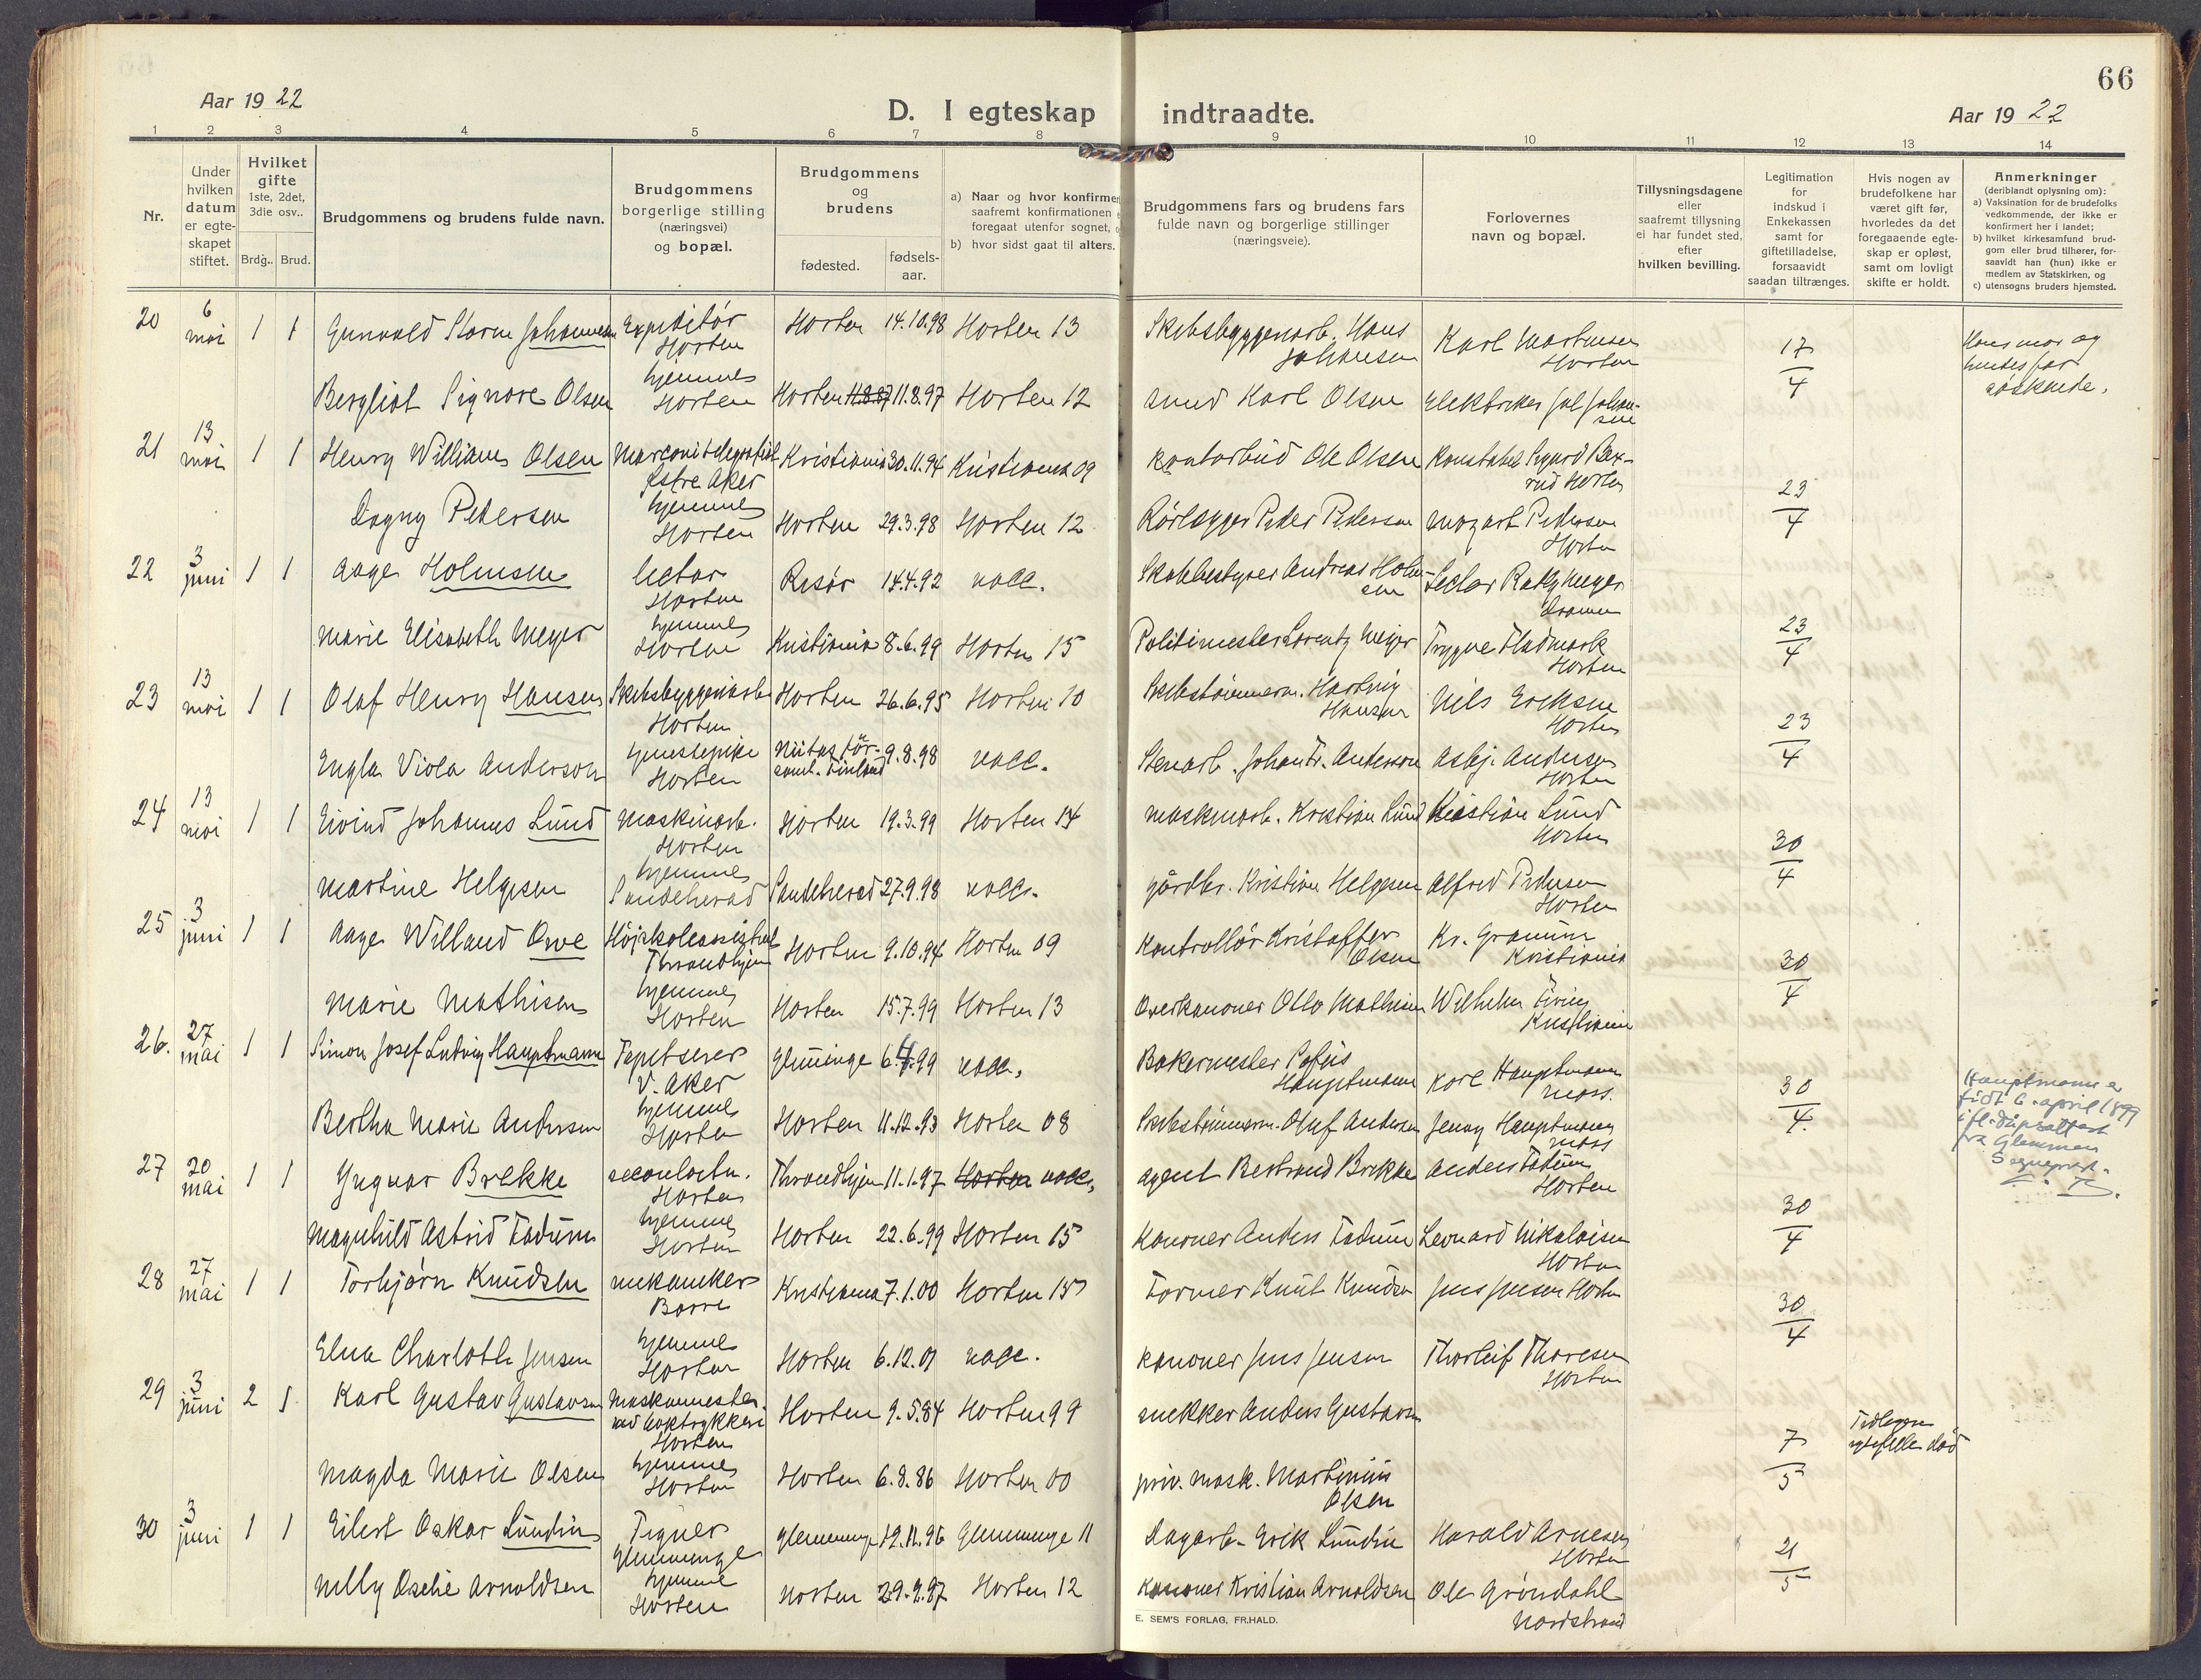 66
Aar 1922
D. I egteskap indtraadte.
Aar 1922
1 2 3 4 5 6 7 8 9 10 11 12 13 14
Nr.
Under hvilken datum er egteskapet stiftet.
Hvilket gifte 1ste, 2det, 3die osv..
Brdg.. Brud.
Brudgommens og brudens fulde navn.
Brudgommens borgerlige stilling (næringsvei) og bopæl.
Brudgommens og brudens
fødested.
fødsels-aar.
a) Naar og hvor konfirme
saafremt konfirmationen
foregaat utenfor sognet,
b) hvor sidst gaat til alters.
Brudgommens fars og brudens fars fulde navn og borgerlige stillinger (næringsveie).
Forlovernes navn og bopæl.
Tillysningsdagene eller saafremt tillysning ei har fundet sted, efter hvilken bevilling.
Legitimation for indskud i Enkekassen samt for giftetilladelse, forsaavidt saadan tiltrænges.
Hvis nogen av brudefolkene har været gift før, hvorledes da det foregaaende egte-skap er opløst, samt om lovligt skifte er holdt.
Anmerkninger (deriblandt oplysning om):
a) Vaksination for de brudefolks vedkommende, der ikke er konfirmert her i landet;
b) hvilket kirkesamfund brud-gom eller brud tilhører, for-saavidt han (hun) ikke er medlem av Statskirken, og
c) utensogns bruders hjemsted.
20 6 mai 1 1 Gunvald Storm Johannesen Expeditör Horten Horten 14.10.98 Horten 13 Skibsbyggerarb. Hans Johansen Karl Martinsen Horten 17/4 Hans mor og hendes far søskende.
Bergliot Signore Olsen hjemme Horten Horten 11.8.97 Horten 12 smed Karl Olsen Elektriker
21 13 mai 1 1 Henry William Olsen Marconitelegrafist Østre Aker Kristiania 30.11.94 Kristiania 09 kontorbud Ole Olsen Konstabel Sigurd Horten 23/4
Dagny Pedersen hjemme Horten Horten 29.3.98 Horten 12 Rörlægger Peder Pedersen Mozart Pedersen Horten
22 3 juni 1 1 Aage Holmsen lector Horten Risör 14.4.92 vacc. Skolebestyrer Andreas Holmsen Lector Meyer Drammen 23/4
Marie Elisabeth Meyer hjemme Horten Kristiania 8.6.99 Horten 15 Politimester Lorentz Meyer Trygve Fladmark Horten
23 13 mai 1 1 Olaf Henry Hansen Skibsbyggeriarb Horten Horten 26.6.95 Horten 10 Skibstømmerm. Hartvig Hansen Nils Eriksen Horten 23/4
Engla Viola Anderson tjenestepike Horten Finland 9.8.98 vacc. Stenarb. Johan Fr. Anderson Asbj. Andersen Horten
24 13 mai 1 1 Eivind Johannes Lund maskinarb. Horten Horten 19.3.99 Horten 14 maskinarb. Kristian Lund Kristian Lund Horten 30/4
Martine Helgesen hjemme Sandeherad Sandeherad 27.9.98 vacc. gårdbr. Kristian Helgesen Alfred Pedersen Horten
25 3 juni 1 1 Aage Willand Owe Höjskoleassistent Throndhjem Horten 9.10.94 Horten 09 Kontrollör Kristoffer Olsen Kr. Kristiania 30/4
Marie Mathisen hjemme Horten Horten 15.7.99 Horten 13 Overkanoner Otto Mathisen Wilhelm Kristiania
26. 27 mai 1 1 Simon Josef Ludvig Hauptmann Tapetserer V. Aker Glemminge 6.4.99 vacc. Bakermester Hauptmann Karl Hauptmann Moss. 30/4. Hauptmann er født 6. april 1899 ifl. dåpsattest fra Glemmen Sogneprest.
Bertha Marie Andersen hjemme Horten Horten 11.12.93 Horten 08 Skibstömmerm. Oluf Andersen Jenny Hauptmann Moss
27 20 mai 1 1 Yngvar Brekke secondløitn. Horten Throndhjem 11.1.97 Horten vacc. agent Bertrand Brekke Anders Fadum Horten 30/4
Magnhild Astrid Fadum hjemme Horten Horten 22.6.99 Horten 15 Kanoner Anders Fadum Leonard Nikolaisen Horten
28 27 mai 1 1 Torbjørn Knudsen mekaniker Borre Kristiania 7.1.00 Horten 15 Former Knut Knudsen Jens Jensen Horten 30/4
Elna Charlotte Jensen hjemme Horten Horten 6.12.01 vacc. kanoner Jens Jensen Thorleif Thoresen Horten
29 3 juni 2 1 Karl Gustav Gustavsen Maskinmester ved Horten Horten 9.5.84 Horten 99 snekker Anders Gustavsen 7/5 død
Magda Marie Olsen hjemme Horten Horten 6.8.86 Horten 00 priv. mask. Martinius Olsen
30 3 juni 1 1 Eilert Oskar Lundin Tegner Glemminge Glemminge 19.11.96 Glemminge 11 Dagarb. Erik Lundin Harald Arnesen Horten 21/5
Nelly Arnoldsen hjemme Horten Horten 29.9.97 Horten 12 kanoner Kristian Arnoldsen Ole Gröndahl Nordstrand
E. SEM'S FORLAG, FR.HALD.